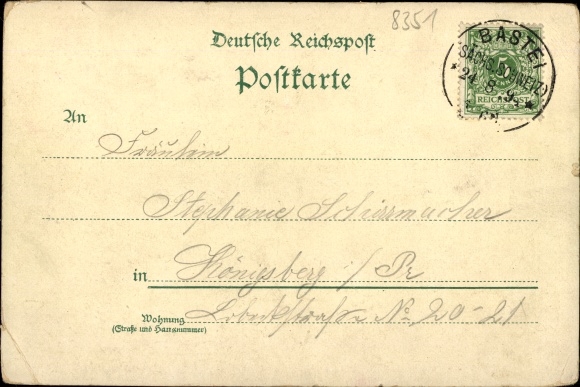 8351
Deutsche Reichspost
Postkarte
BASTEI
(SÄCHS. SCHWEIZ)
24 8 99
5
REICHSPOST
An
Fräulein
Stephanie Schirrmacher
in Königsberg i/Pr
Wohnung
(Straße und Hausnummer)
Lobeckstraße No 20-21